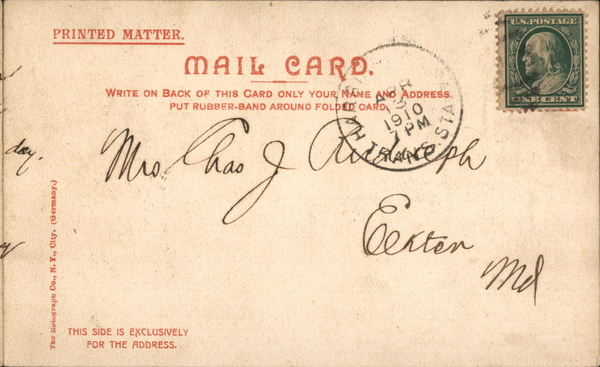 PRINTED MATTER.
U.S. POSTAGE
ONE CENT
MAIL CARD.
WRITE ON BACK OF THIS CARD ONLY YOUR NAME AND ADDRESS.
PUT RUBBER-BAND AROUND FOLDED CARD.
APR
1910
7 PM
TRANS. STA
day.
Mrs Chas J
Md
The Rotograph Co., N. Y., City. (Germany.)
THIS SIDE IS EXCLUSIVELY
FOR THE ADDRESS.